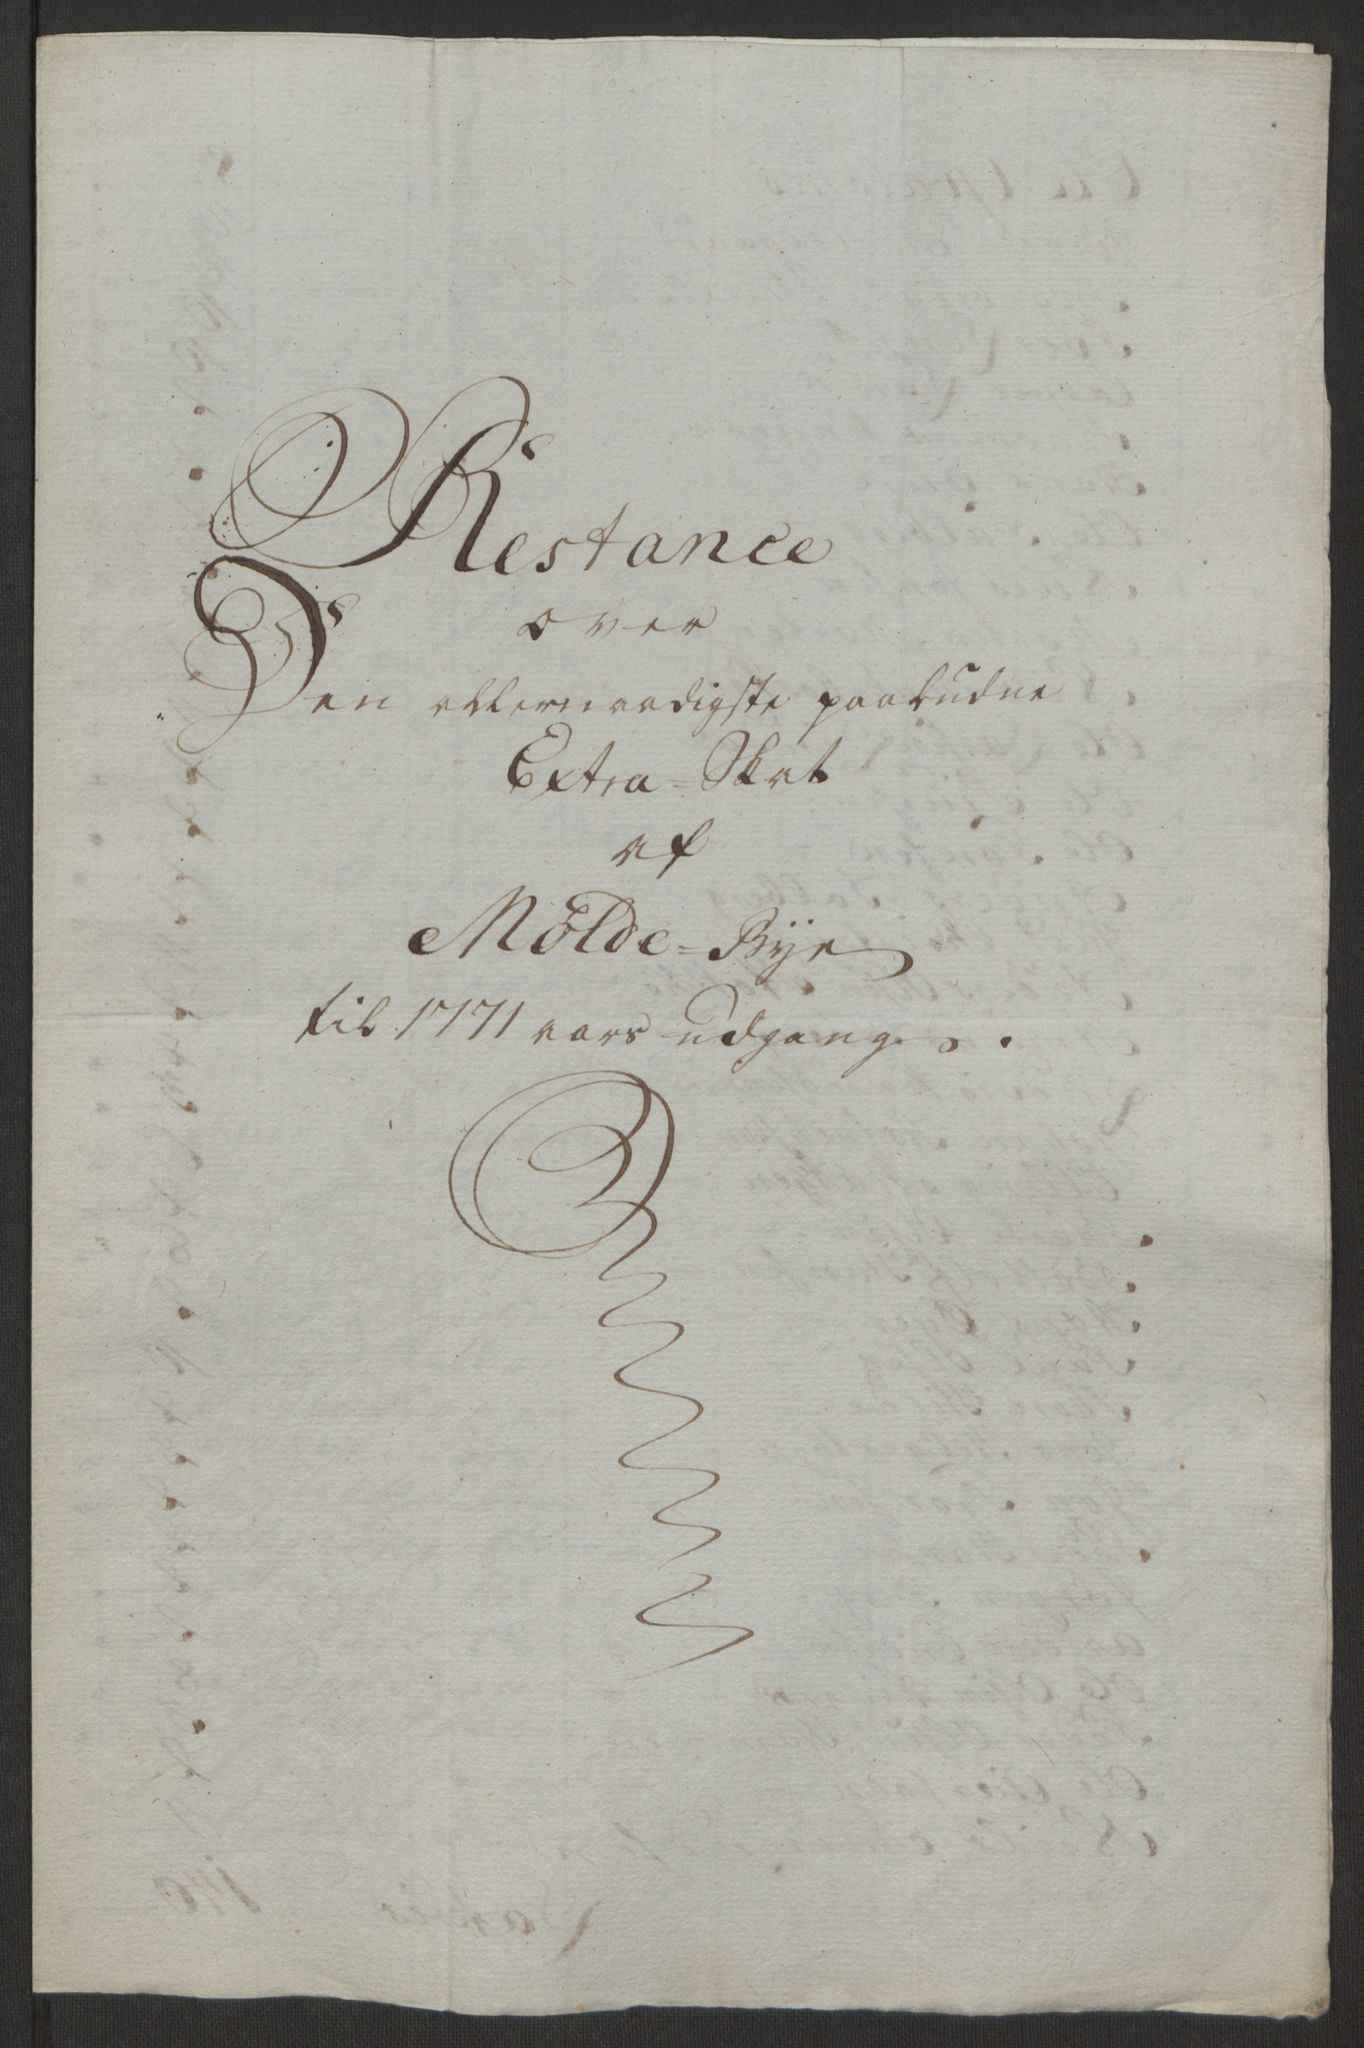 Restance
over
Den allernaadigste paabudne
Extra-Skat
af
Molde-Bÿe
til 1771 aars udgang.